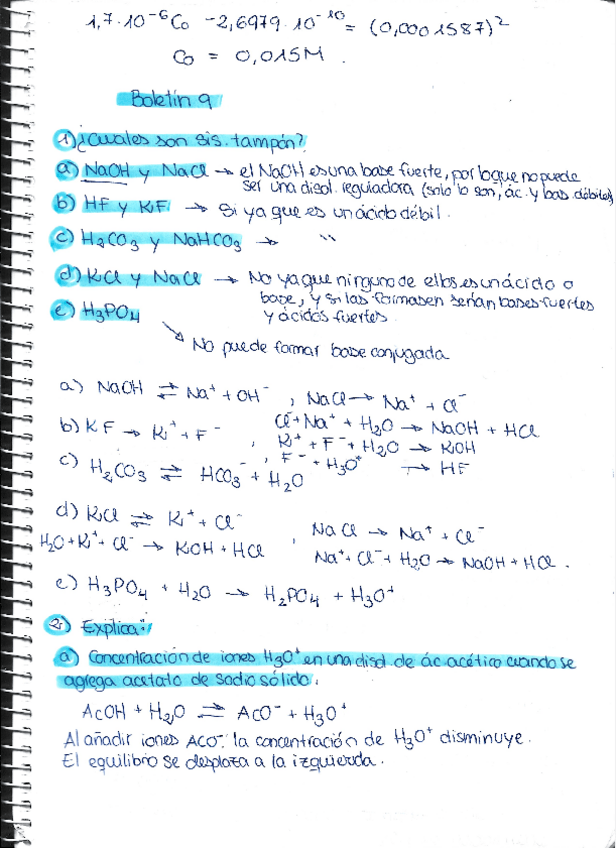 1,7·10⁻⁶Co - 2,6979·10⁻¹⁰ = (0,0001587)²
Co = 0,015M.
Boletín 9
1) ¿Cuales son sis. tampón?
a) NaOH y NaCl → el NaOH es una base fuerte, por lo que no puede
ser una disol. reguladora (solo lo son, ác. y bas. débiles)
b) HF y KF → Si ya que es un ácido débil.
c) H₂CO₃ y NaHCO₃ → "
d) KCl y NaCl → No ya que ninguno de ellos es un ácido o
base, y si las formasen serían bases fuertes
y ácidos fuertes.
e) H₃PO₄
↘ No puede formar base conjugada
a) NaOH ⇌ Na⁺ + OH⁻ , NaCl → Na⁺ + Cl⁻
Cl⁻ + Na⁺ + H₂O → NaOH + HCl
b) KF → K⁺ + F⁻ , K⁺ + F⁻ + H₂O → KOH
F⁻ + H₃O⁺ → HF
c) H₂CO₃ ⇌ HCO₃⁻ + H₂O
d) KCl ⇌ K⁺ + Cl⁻ , NaCl → Na⁺ + Cl⁻
H₂O + K⁺ + Cl⁻ → KOH + HCl Na⁺ + Cl⁻ + H₂O → NaOH + HCl.
e) H₃PO₄ + H₂O → H₂PO₄ + H₃O⁺
2) Explica:
a) Concentración de iones H₃O⁺ en una disol. de ác. acético cuando se
agrega acetato de sodio sólido.
AcOH + H₂O ⇌ ACO⁻ + H₃O⁺
Al añadir iones ACO⁻: la concentración de H₃O⁺ disminuye.
El equilibro se desplaza a la izquierda.